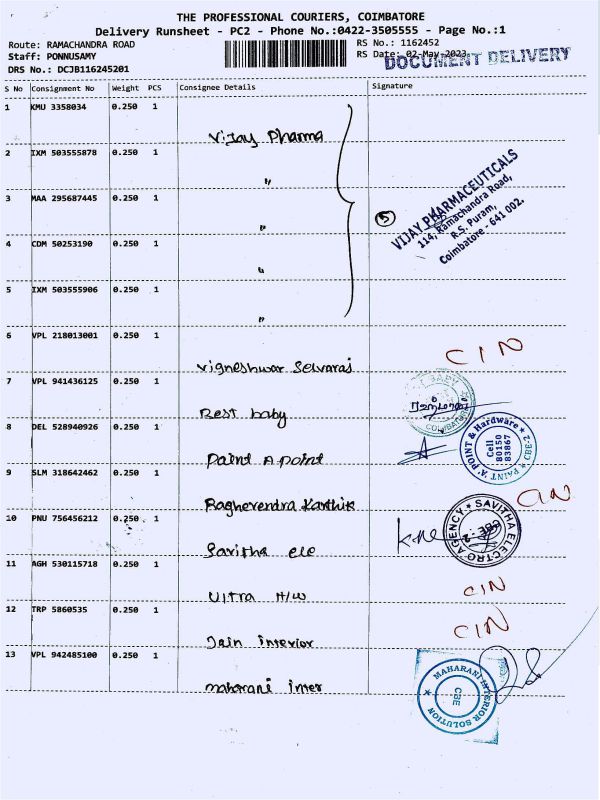 THE PROFESSIONAL COURIERS, COIMBATORE
Delivery Runsheet - PC2 - Phone No.:0422-3505555 - Page No.:1
Route: RAMACHANDRA ROAD
RS No.: 1162452
Staff: PONNUSAMY
RS Date: 02-May-2023
DOCUMENT DELIVERY
DRS No.: DCJB116245201
S No Consignment No Weight PCS Consignee Details Signature
1 KMU 3358034 0.250 1
Vijay Pharma
2 IXM 503555878 0.250 1
"
3 MAA 295687445 0.250 1
"
4 CDM 50253190 0.250 1
"
5 IXM 503555906 0.250 1
"
5
VIJAY PHARMACEUTICALS
114, Ramachandra Road,
R.S. Puram,
Coimbatore - 641 002.
6 VPL 218013001 0.250 1
Vigneshwar Selvaraj
CIN
7 VPL 941436125 0.250 1
Best baby
BABY
COIMBATORE
8 DEL 528940926 0.250 1
Paint A point
PAINT 'A' POINT & Hardware
CBE-2
Cell
80150
83867
9 SLM 318642462 0.250 1
Ragherendra Karthik
CIN
10 PNU 756456212 0.250 1
Savitha ele
SAVITHA ELECTRO AGENCY
CBE-2
11 AGH 530115718 0.250 1
Ultra H/W
CIN
12 TRP 5860535 0.250 1
Jain interior
CIN
13 VPL 942485100 0.250 1
maharani inter
MAHARANI INTERIOR SOLUTION
CBE